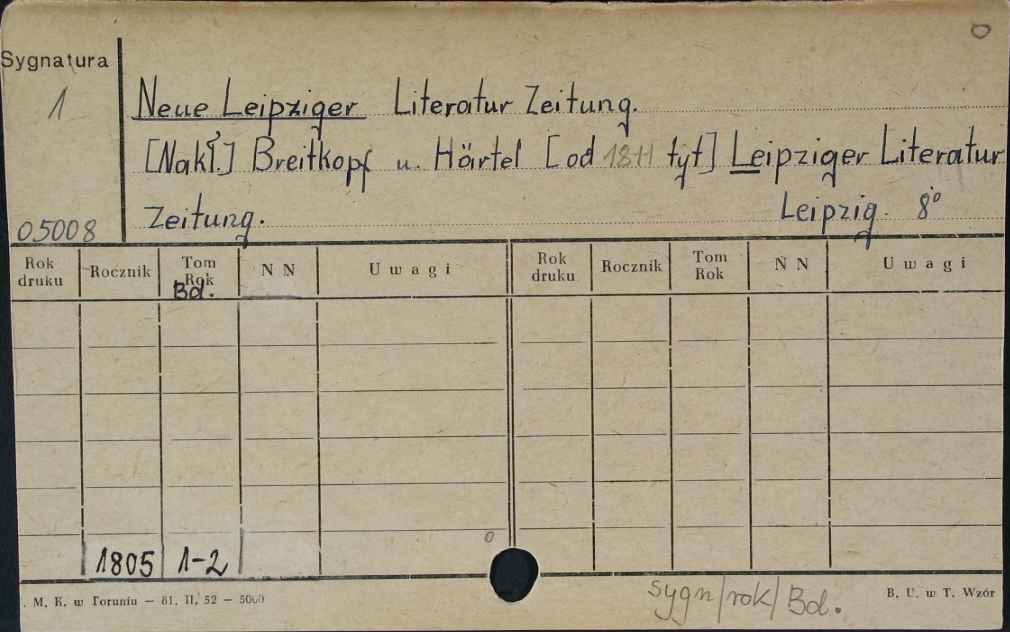 Sygnatura
1
Neue Leipziger Literatur Zeitung.
[Nakł.] Breitkopf u. Härtel [od 1811 tyt] Leipziger Literatur
Zeitung. Leipzig. 8°
05008
Rok druku Rocznik Tom Rok Bd. N N Uwagi Rok druku Rocznik Tom Rok N N Uwagi
1805 1-2
. M. K. w Toruniu — 81. II. 52 — 5000
sygn/rok/Bd.
B. U. w T. Wzór